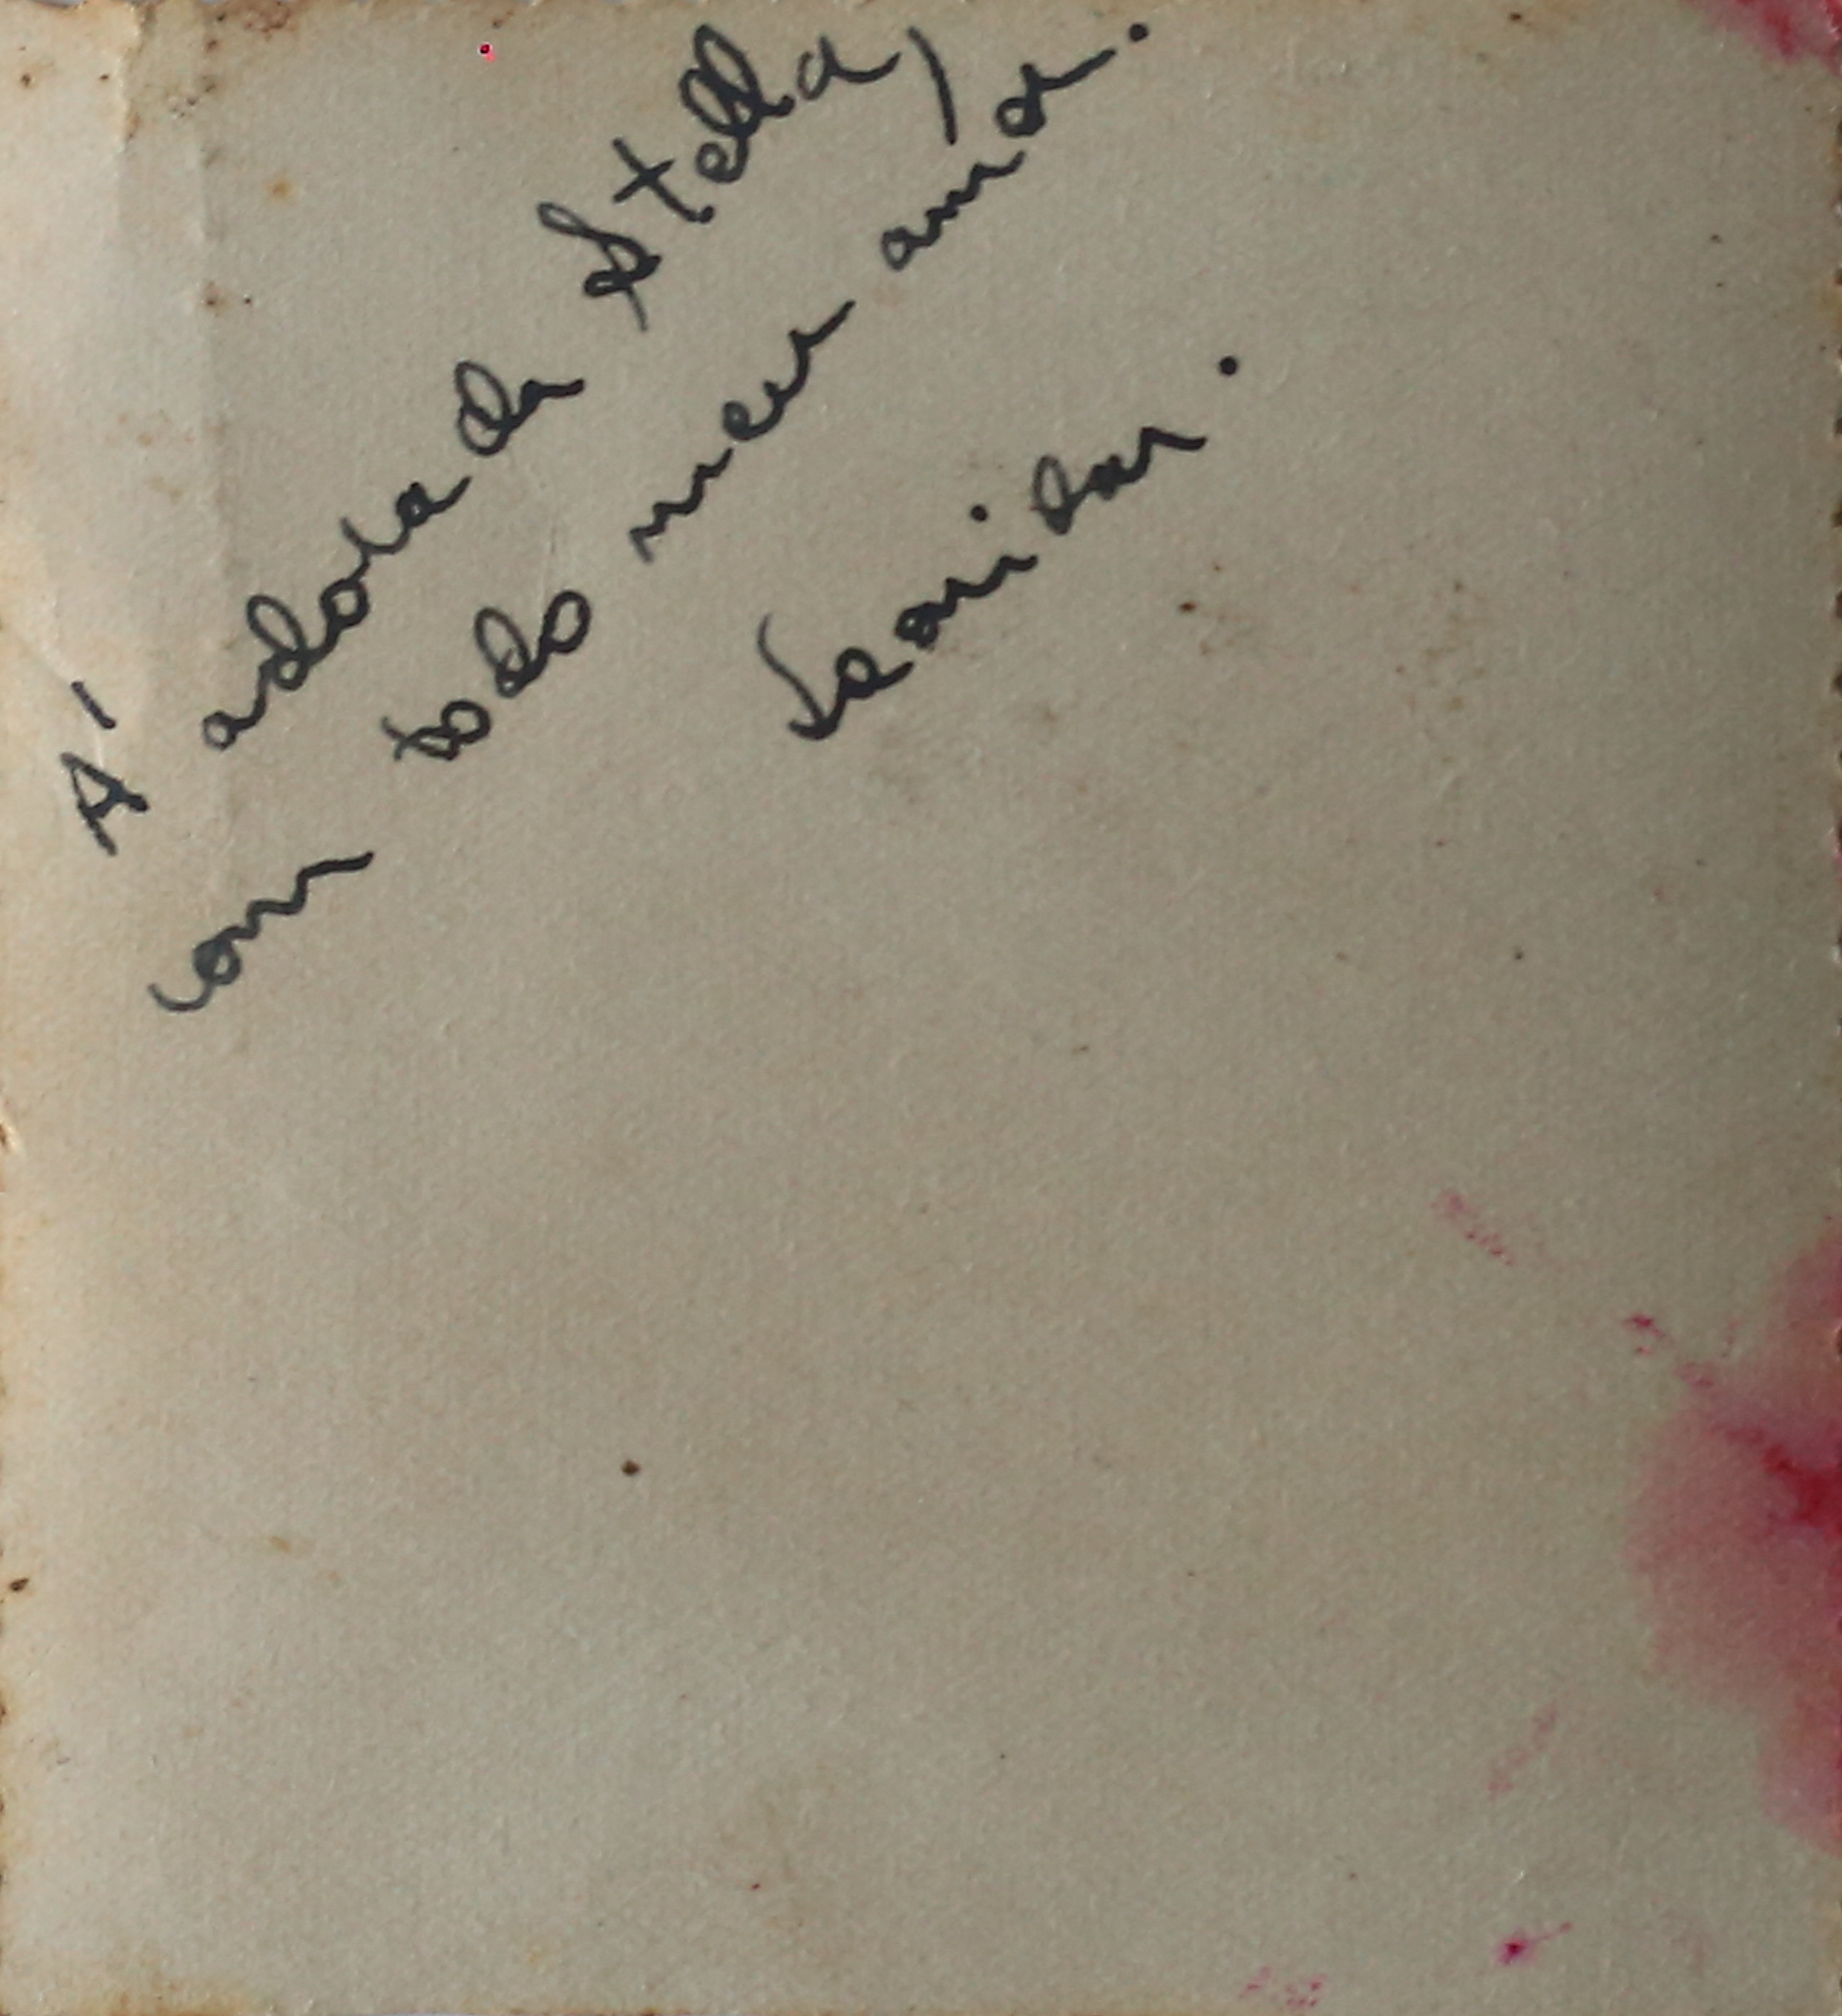 Á adorada Stella,
com todo meu amor.